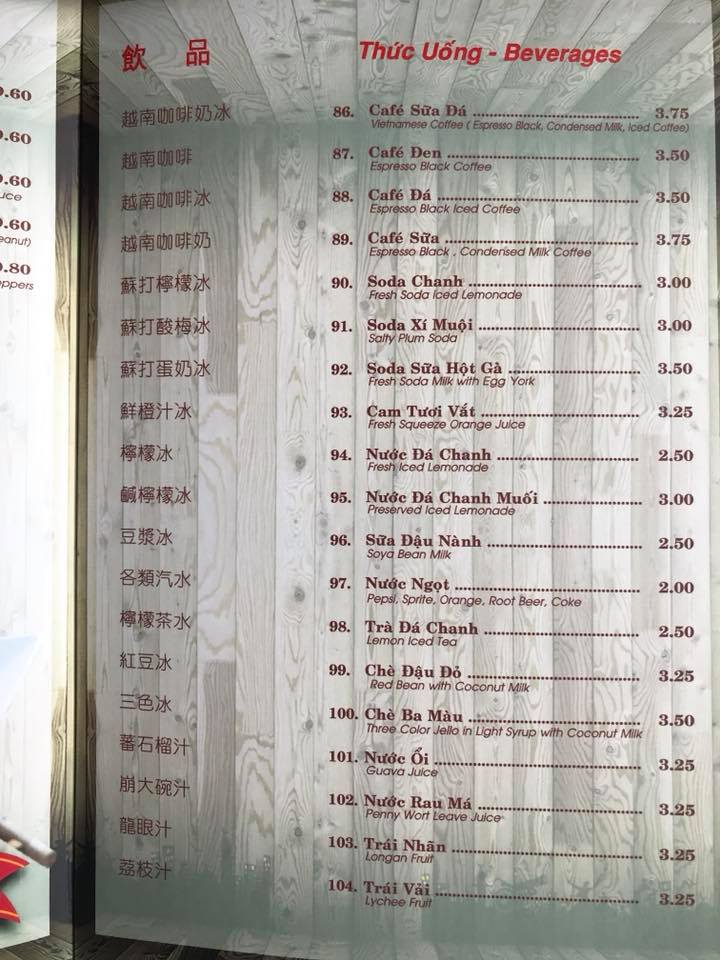 0.60
0.60
0.60
uce
0.60
eanut)
0.80
eppers
飲 品 Thức Uống - Beverages
越南咖啡奶冰 86. Café Sữa Đá 3.75
Vietnamese Coffee ( Espresso Black, Condensed Milk, Iced Coffee)
越南咖啡 87. Café Đen 3.50
Espresso Black Coffee
越南咖啡冰 88. Café Đá 3.50
Espresso Black Iced Coffee
越南咖啡奶 89. Café Sữa 3.75
Espresso Black , Condensed Milk Coffee
蘇打檸檬冰 90. Soda Chanh 3.00
Fresh Soda Iced Lemonade
蘇打酸梅冰 91. Soda Xí Muội 3.00
Salty Plum Soda
蘇打蛋奶冰 92. Soda Sữa Hột Gà 3.50
Fresh Soda Milk with Egg York
鮮橙汁冰 93. Cam Tươi Vắt 3.25
Fresh Squeeze Orange Juice
檸檬冰 94. Nước Đá Chanh 2.50
Fresh Iced Lemonade
鹹檸檬冰 95. Nước Đá Chanh Muối 3.00
Preserved Iced Lemonade
豆漿冰 96. Sữa Đậu Nành 2.50
Soya Bean Milk
各類汽水 97. Nước Ngọt 2.00
Pepsi, Sprite, Orange, Root Beer, Coke
檸檬茶冰 98. Trà Đá Chanh 2.50
Lemon Iced Tea
紅豆冰 99. Chè Đậu Đỏ 3.25
Red Bean with Coconut Milk
三色冰 100. Chè Ba Màu 3.50
Three Color Jello in Light Syrup with Coconut Milk
蕃石榴汁 101. Nước Ổi 3.25
Guava Juice
崩大碗汁 102. Nước Rau Má 3.25
Penny Wort Leave Juice
龍眼汁 103. Trái Nhãn 3.25
Longan Fruit
荔枝汁 104. Trái Vải 3.25
Lychee Fruit